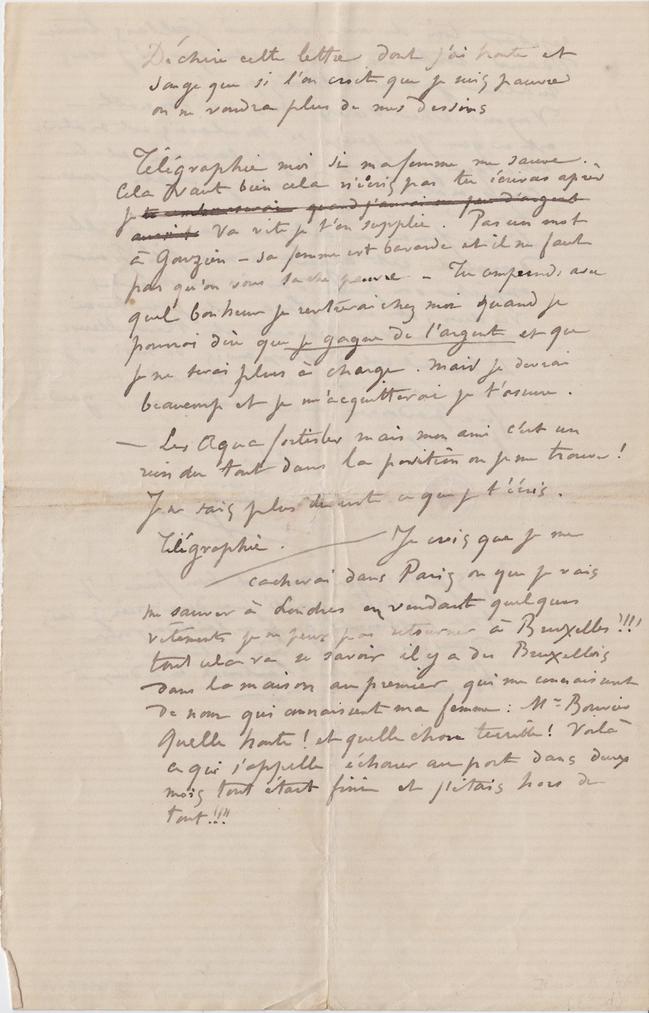 Déchire cette lettre dont j'ai honte et
songe que si l'on croit que je suis pauvre
on ne voudra plus de mes dessins
Télégraphie moi si ma femme me sauve.
Cela vaut bien cela n'écris pas tu écriras après
je te rembourserai quand j'aurai un peu d'argent
aussitôt Va vite je t'en supplie. Pas un mot
à Gouzien – sa femme est bavarde et il ne faut
pas qu'on vous sache pauvre – Tu comprends avec
quel bonheur je rentrerai chez moi quand je
pourrai dire que je gagne de l'argent et que
je ne serai plus à charge. Mais je devrai
beaucoup et je m'acquitterai je t'assure.
— Les Aqua fortistes mais mon ami c'est un
rien du tout dans la position où je me trouve!
Je ne sais plus du reste ce que je t'écris.
Télégraphie. — Je crois que je me
cacherai dans Paris ou que je vais
me sauver à Londres en vendant quelques
vêtements je ne peux pas retourner à Bruxelles!!!
tout cela va se savoir il y a des Bruxellois
dans la maison au premier qui me connaissent
de nom qui connaissent ma femme: Mr Bouvier
Quelle honte! et quelle chose terrible! Voilà
ce qui s'appelle échouer au port dans deux
mois tout était fini et j'étais hors de
tout!!!